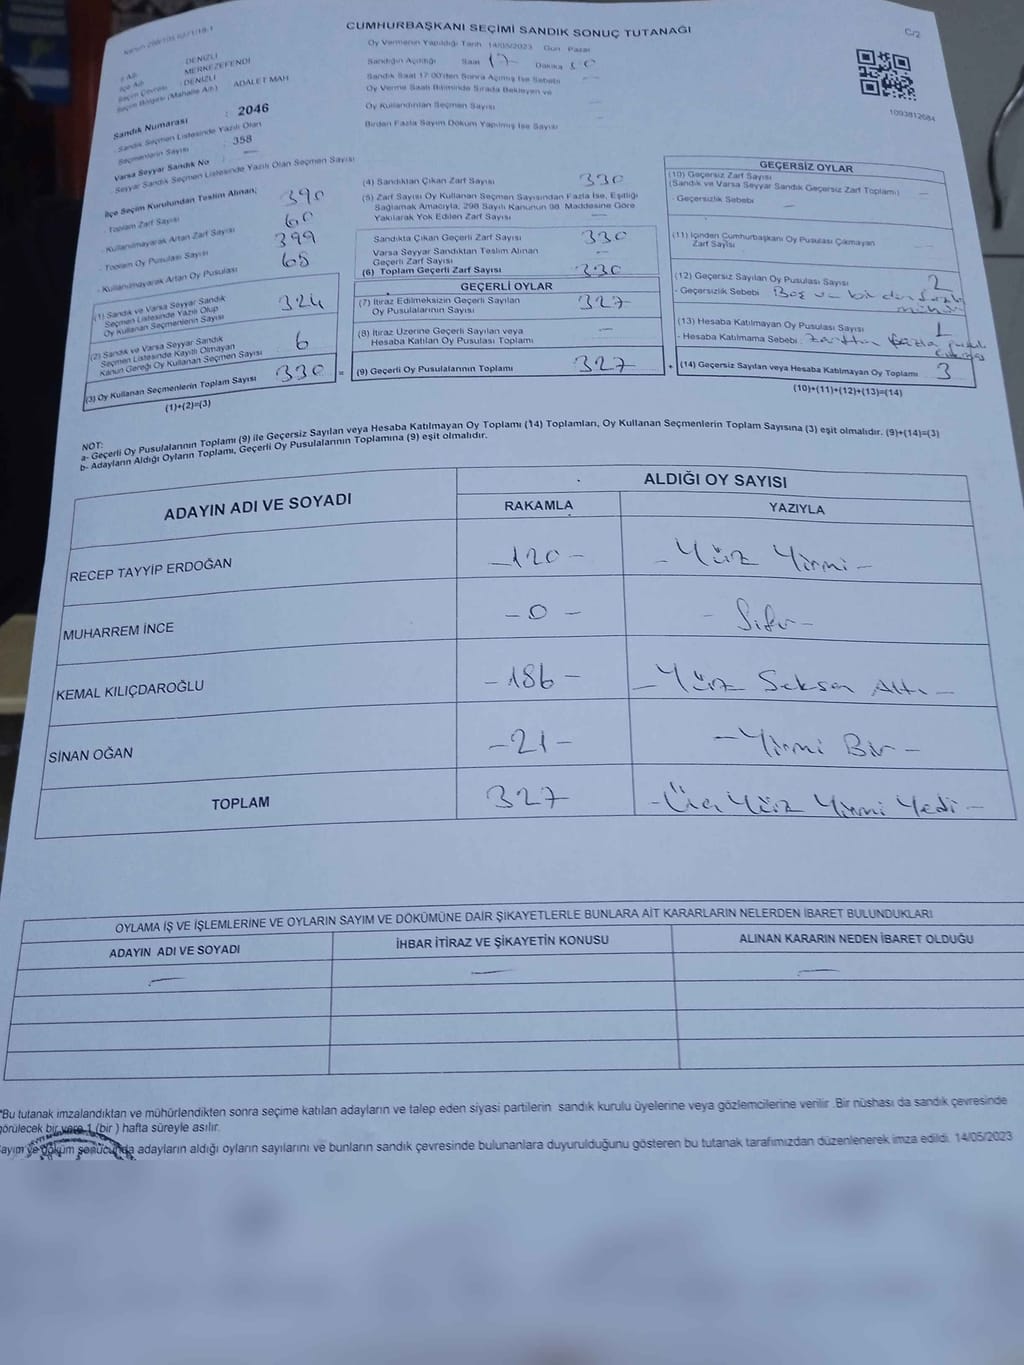 CUMHURBAŞKANI SEÇİMİ SANDIK SONUÇ TUTANAĞI
C/2
1093812684
İl Adı : DENİZLİ
İlçe Adı : MERKEZEFENDİ
Seçim Çevresi : DENİZLİ
Seçim Bölgesi (Mahalle Adı) : ADALET MAH
Sandık Numarası : 2046
Sandık Seçmen Listesinde Yazılı Olan
Seçmenlerin Sayısı : 358
Varsa Seyyar Sandık No : —
Seyyar Sandık Seçmen Listesinde Yazılı Olan Seçmen Sayısı
İlçe Seçim Kurulundan Teslim Alınan;
- Toplam Zarf Sayısı 390
- Kullanılmayarak Artan Zarf Sayısı 60
- Toplam Oy Pusulası Sayısı 399
- Kullanılmayarak Artan Oy Pusulası 68
(1) Sandık ve Varsa Seyyar Sandık
Seçmen Listesinde Yazılı Olup
Oy Kullanan Seçmenlerin Sayısı 324
(2) Sandık ve Varsa Seyyar Sandık
Seçmen Listesinde Kayıtlı Olmayan
Kanun Gereği Oy Kullanan Seçmen Sayısı 6
(3) Oy Kullanan Seçmenlerin Toplam Sayısı 330
(1)+(2)=(3)
Oy Vermenin Yapıldığı Tarih 14/05/2023 Gün Pazar
Sandığın Açıldığı Saat 17 Dakika
Sandık Saat 17:00'den Sonra Açılmış İse Sebebi —
Oy Verme Saati Bitiminde Sırada Bekleyen ve
Oy Kullandırılan Seçmen Sayısı —
Birden Fazla Sayım Döküm Yapılmış İse Sayısı —
(4) Sandıktan Çıkan Zarf Sayısı 330
(5) Zarf Sayısı Oy Kullanan Seçmen Sayısından Fazla İse, Eşitliği
Sağlamak Amacıyla, 298 Sayılı Kanunun 98. Maddesine Göre
Yakılarak Yok Edilen Zarf Sayısı —
Sandıkta Çıkan Geçerli Zarf Sayısı 330
Varsa Seyyar Sandıktan Teslim Alınan
Geçerli Zarf Sayısı —
(6) Toplam Geçerli Zarf Sayısı 330
GEÇERLİ OYLAR
(7) İtiraz Edilmeksizin Geçerli Sayılan
Oy Pusulalarının Sayısı 327
(8) İtiraz Üzerine Geçerli Sayılan veya
Hesaba Katılan Oy Pusulası Toplamı —
= (9) Geçerli Oy Pusulalarının Toplamı 327 +
GEÇERSİZ OYLAR
(10) Geçersiz Zarf Sayısı
(Sandık ve Varsa Seyyar Sandık Geçersiz Zarf Toplamı) —
- Geçersizlik Sebebi —
(11) İçinden Cumhurbaşkanı Oy Pusulası Çıkmayan
Zarf Sayısı —
(12) Geçersiz Sayılan Oy Pusulası Sayısı 2
- Geçersizlik Sebebi Boş ve birden fazla
mühür
(13) Hesaba Katılmayan Oy Pusulası Sayısı 1
- Hesaba Katılmama Sebebi zarftan fazla pusula
çıkması
(14) Geçersiz Sayılan veya Hesaba Katılmayan Oy Toplamı 3
(10)+(11)+(12)+(13)=(14)
NOT:
a- Geçerli Oy Pusulalarının Toplamı (9) ile Geçersiz Sayılan veya Hesaba Katılmayan Oy Toplamı (14) Toplamları, Oy Kullanan Seçmenlerin Toplam Sayısına (3) eşit olmalıdır. (9)+(14)=(3)
b- Adayların Aldığı Oyların Toplamı, Geçerli Oy Pusulalarının Toplamına (9) eşit olmalıdır.
ADAYIN ADI VE SOYADI ALDIĞI OY SAYISI
RAKAMLA YAZIYLA
RECEP TAYYİP ERDOĞAN -120- -Yüz Yirmi-
MUHARREM İNCE -0- -Sıfır-
KEMAL KILIÇDAROĞLU -186- -Yüz Seksen Altı-
SİNAN OĞAN -21- -Yirmi Bir-
TOPLAM 327 -Üç Yüz Yirmi Yedi-
OYLAMA İŞ VE İŞLEMLERİNE VE OYLARIN SAYIM VE DÖKÜMÜNE DAİR ŞİKAYETLERLE BUNLARA AİT KARARLARIN NELERDEN İBARET BULUNDUKLARI
ADAYIN ADI VE SOYADI İHBAR İTİRAZ VE ŞİKAYETİN KONUSU ALINAN KARARIN NEDEN İBARET OLDUĞU
— — —
*Bu tutanak imzalandıktan ve mühürlendikten sonra seçime katılan adayların ve talep eden siyasi partilerin sandık kurulu üyelerine veya gözlemcilerine verilir .Bir nüshası da sandık çevresinde
görülecek bir yere 1 (bir ) hafta süreyle asılır.
Sayım ve döküm sonucunda adayların aldığı oyların sayılarını ve bunların sandık çevresinde bulunanlara duyurulduğunu gösteren bu tutanak tarafımızdan düzenlenerek imza edildi. 14/05/2023